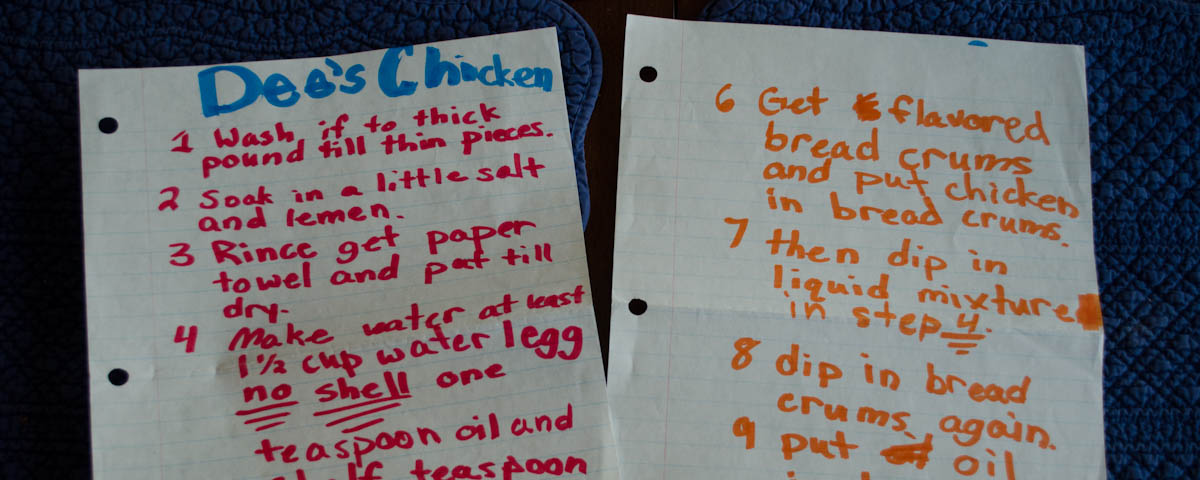 Dee's Chicken
1 Wash if to thick
pound till thin pieces.
2 Soak in a little salt
and lemen.
3 Rince get paper
towel and pat till
dry.
4 Make water at least
1 1/2 cup water 1 egg
no shell one
teaspoon oil and
half teaspoon
6 Get flavored
bread crums
and put chicken
in bread crums.
7 then dip in
liquid mixture
in step 4.
8 dip in bread
crums again.
9 put oil